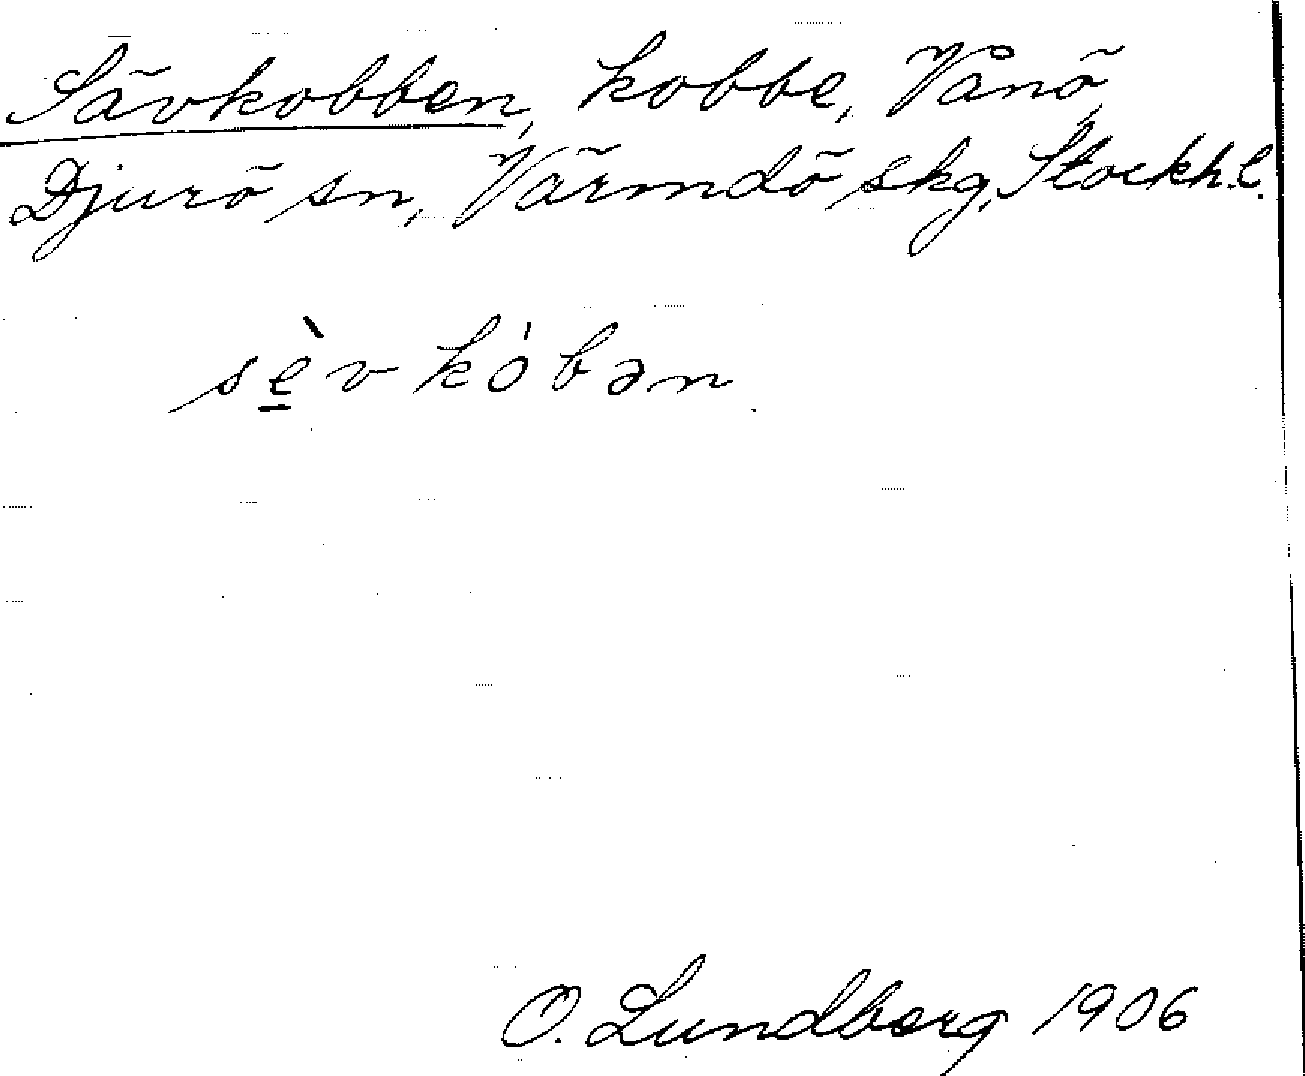 Sävkobben, kobbe, Vånö,
Djurö sn, Värmdö skg, Stockh. l.
sè̱vkóbən
O. Lundberg 1906